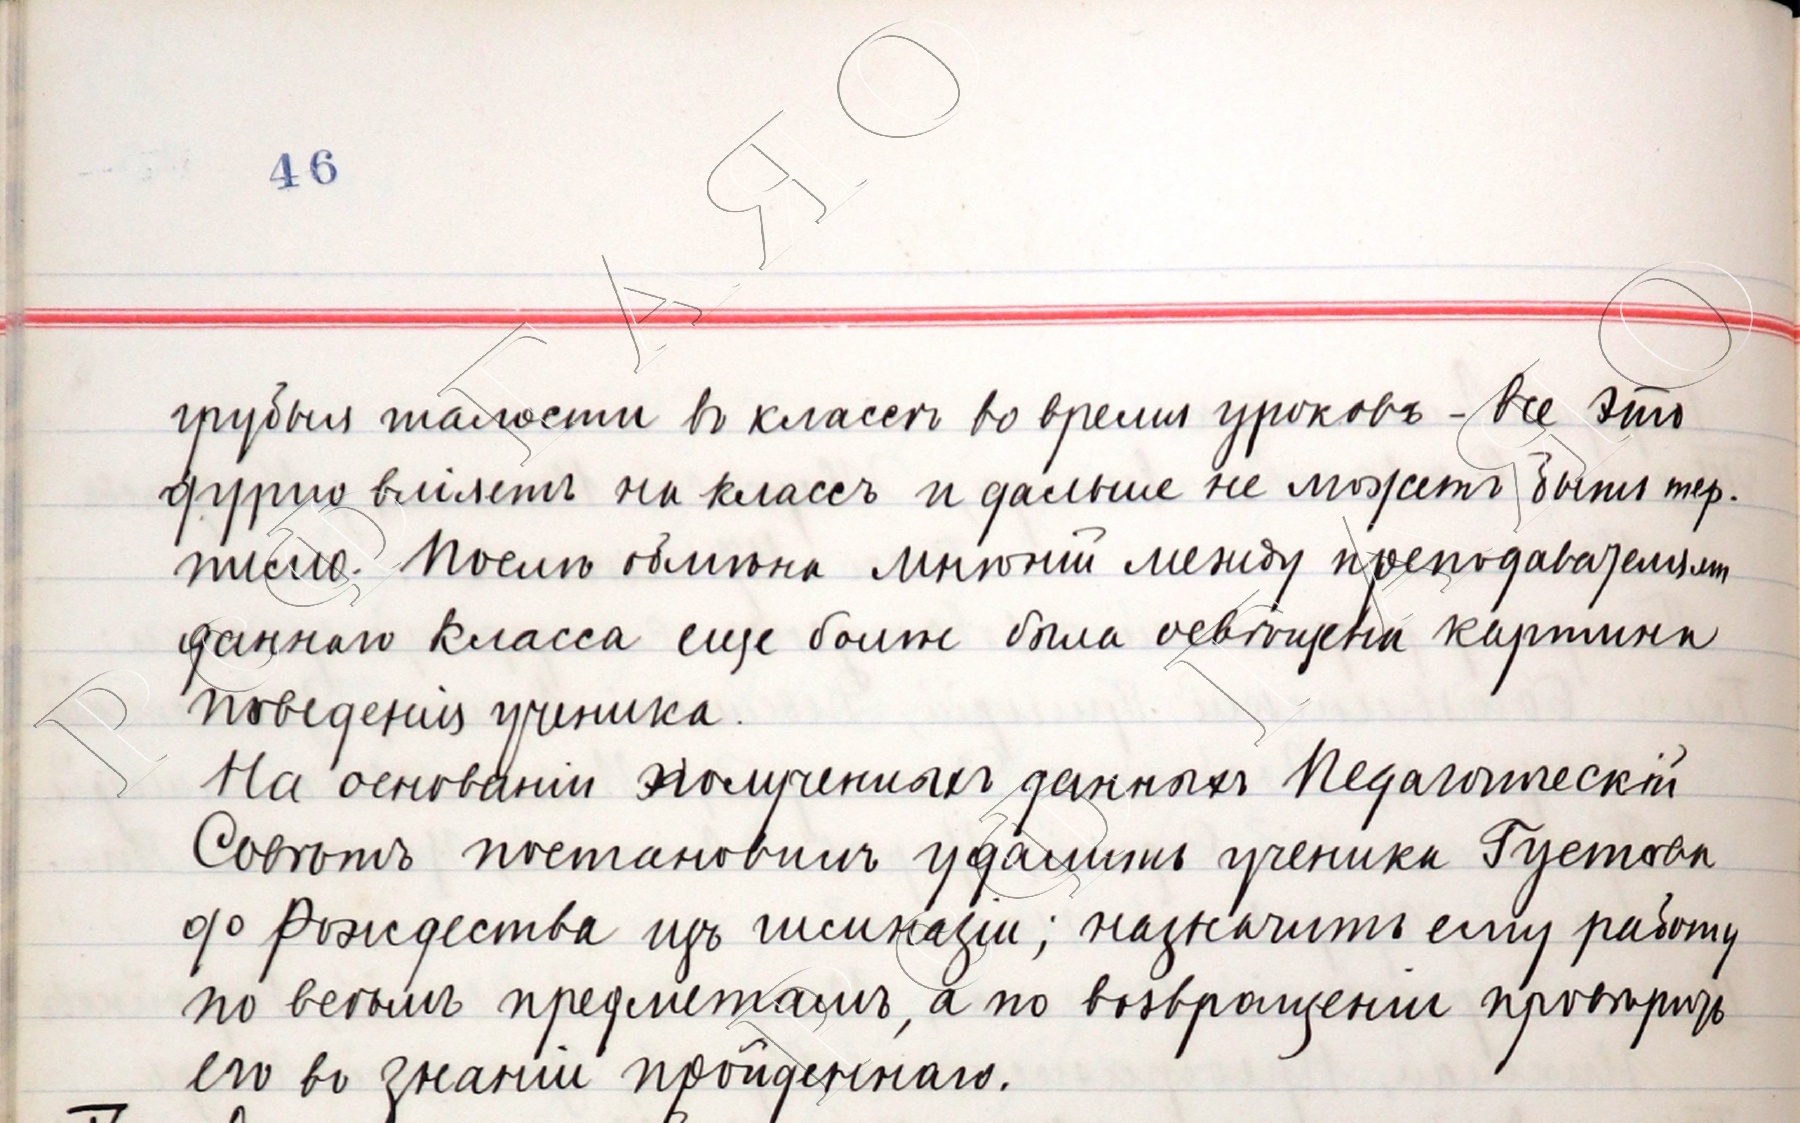 46
грубыя шалости въ классѣ во время уроковъ – все это
дурно вліяетъ на классъ и дальше не можетъ быть тер-
пимо. Послѣ обмѣна мнѣній между преподавателями
даннаго класса еще болѣе была освѣщена картина
поведенія ученика.
На основаніи полученныхъ данныхъ Педагогическій
Совѣтъ постановилъ удалить ученика Густова
до Рождества изъ гимназіи; назначить ему работу
по всѣмъ предметамъ, а по возвращеніи провѣрить
его во знаніи пройденнаго.
РСФ ГАЯО
РСФ ГАЯО